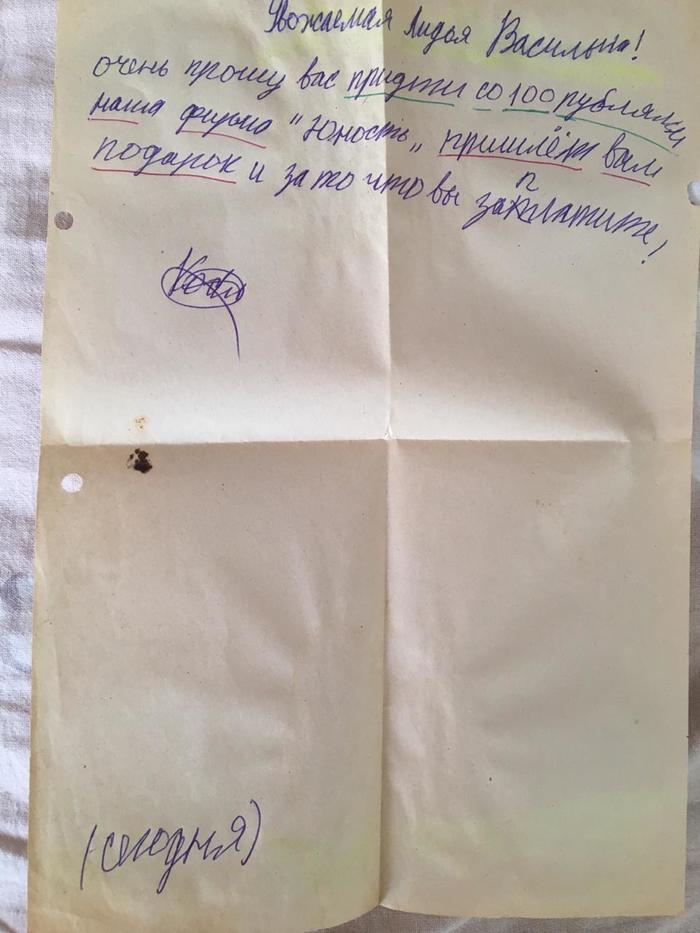 Уважаемая Лидья Васильна!
очень прошу вас придти со 100 рублями
наша фирма "Юность„ пришлёт вам
подарок и за то что вы заплатите!
(сегодня)